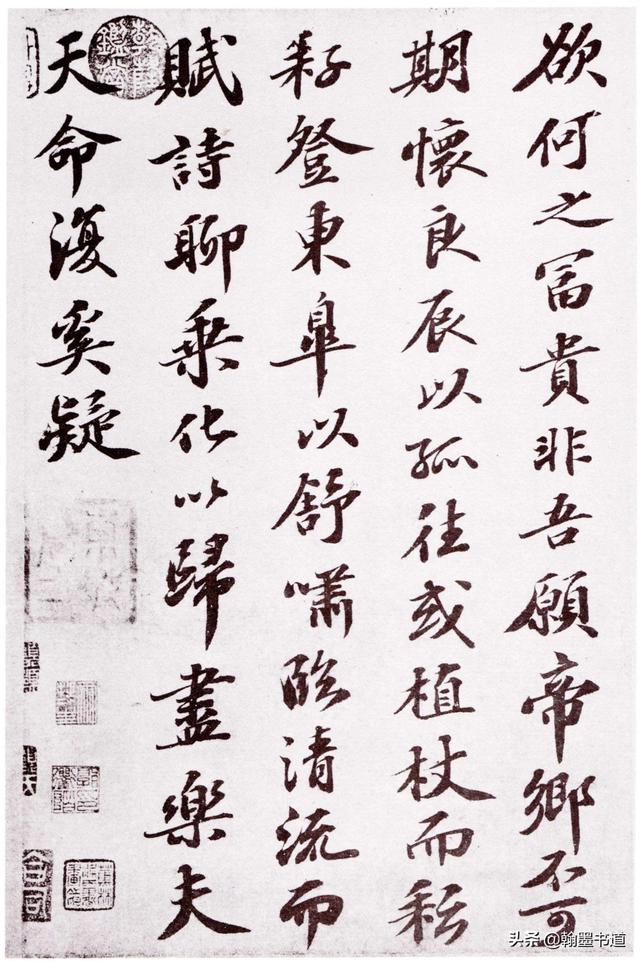 欲何之富貴非吾願帝鄉不可
期懷良辰以孤往或植杖而耘
耔登東皐以舒嘯臨清流而
賦詩聊乗化以歸盡樂夫
天命復奚疑
头条 @翰墨书道